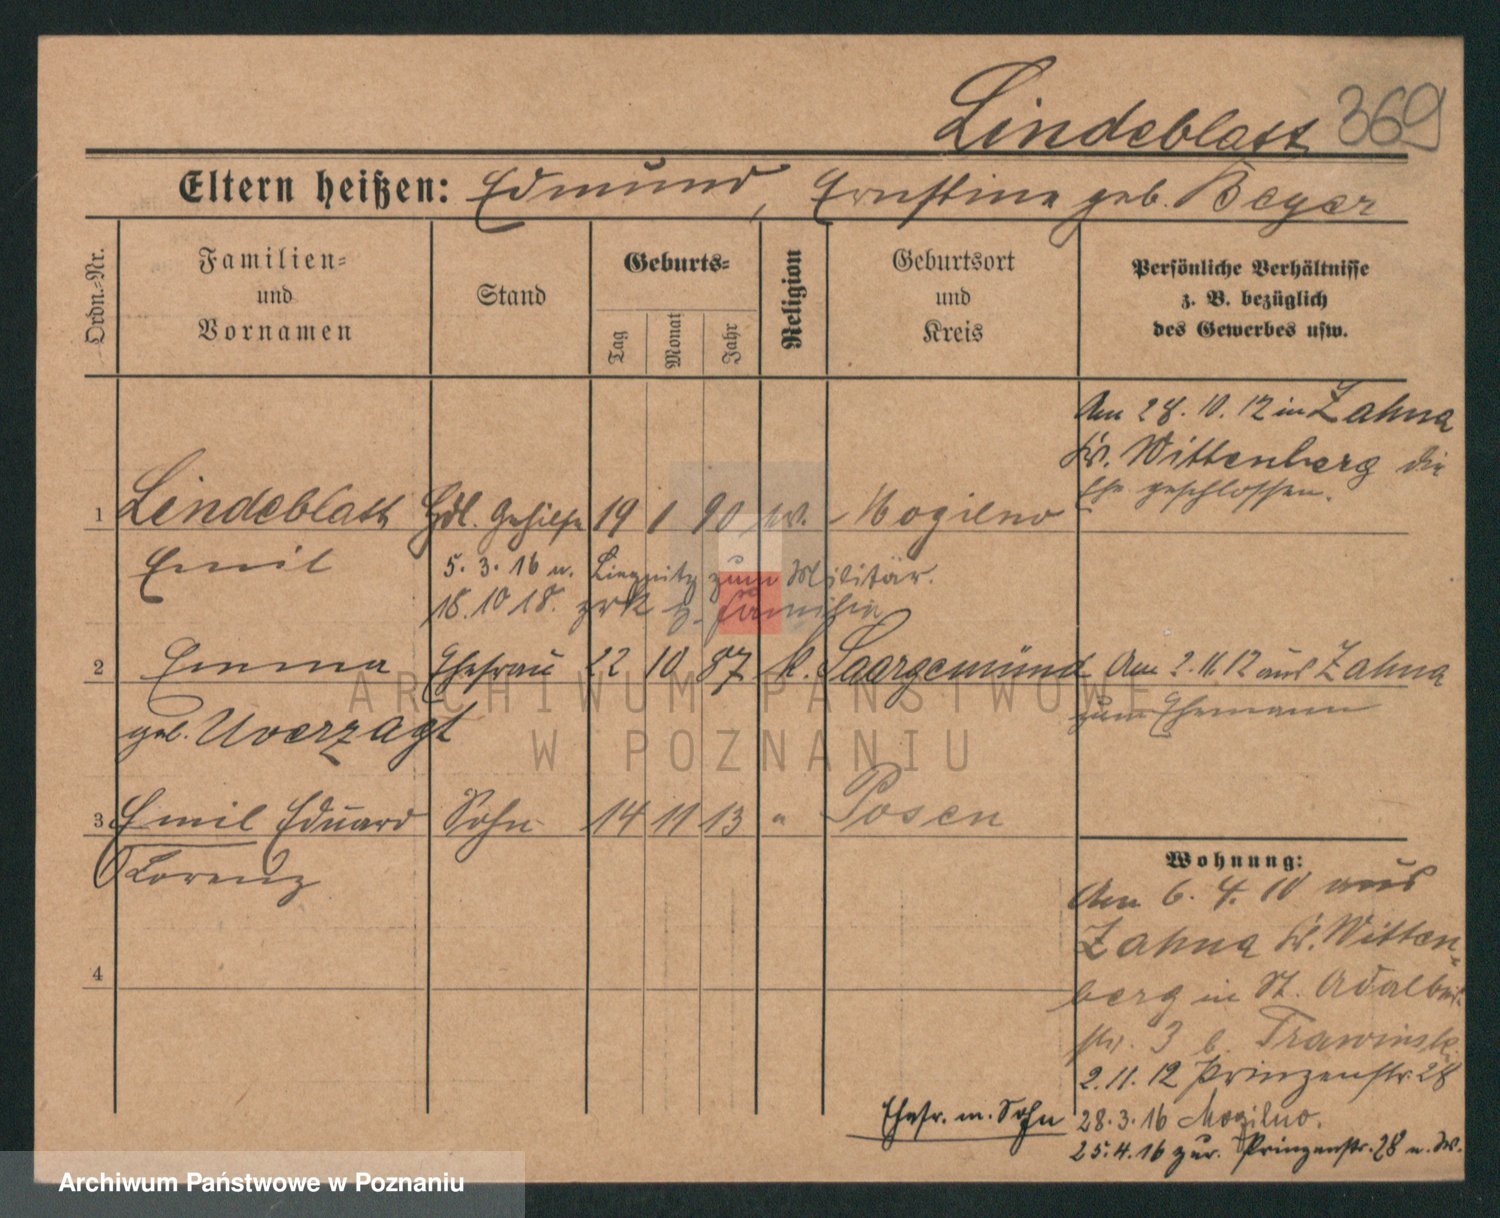 Lindeblatt 369
Eltern heißen: Edmund, Ernstine geb. Beyer
Ordn.-Nr.
Familien-
und
Vornamen
Stand
Geburts-
Tag
Monat
Jahr
Religion
Geburtsort
und
Kreis
Persönliche Verhältnisse
z. B. bezüglich
des Gewerbes usw.
Am 28. 10. 12 in Zahna
Kr. Wittenberg die
Ehe geschlossen.
1 Lindeblatt Hdl. Gehilfe 19 1 90 Mogilno
Emil
5. 3. 16 n. Liegnitz zum Militär.
18. 10 18. zrk z. Familie
2 Emma Ehefrau 22 10 87 k. Saargemünd Am 2. 11. 12 aus Zahna
zum Ehemann
geb. Uverzagt
3 Emil Eduard Sohn 14 11 13 " Posen
Lorenz
4
Wohnung:
Am 6. 4. 10 aus
Zahna Kr. Witten-
berg in St. Adalbert-
str. 3 b. Trawinski
2. 11. 12 Prinzenstr. 28
Ehefr. m. Sohn 28. 3. 16 Mogilno.
25. 4. 16 zur. Prinzenstr. 28
ARCHIWUM PAŃSTWOWE
W POZNANIU
Archiwum Państwowe w Poznaniu